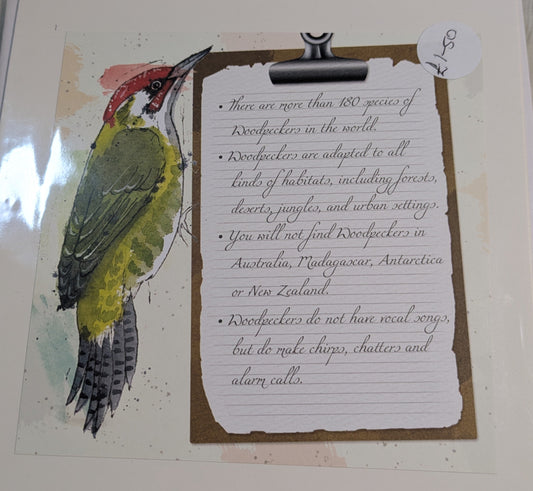 £1-50
• There are more than 180 species of
Woodpeckers in the world.
• Woodpeckers are adapted to all
kinds of habitats, including forests,
deserts, jungles, and urban settings.
• You will not find Woodpeckers in
Australia, Madagascar, Antarctica
or New Zealand.
• Woodpeckers do not have vocal songs,
but do make chirps, chatters and
alarm calls.